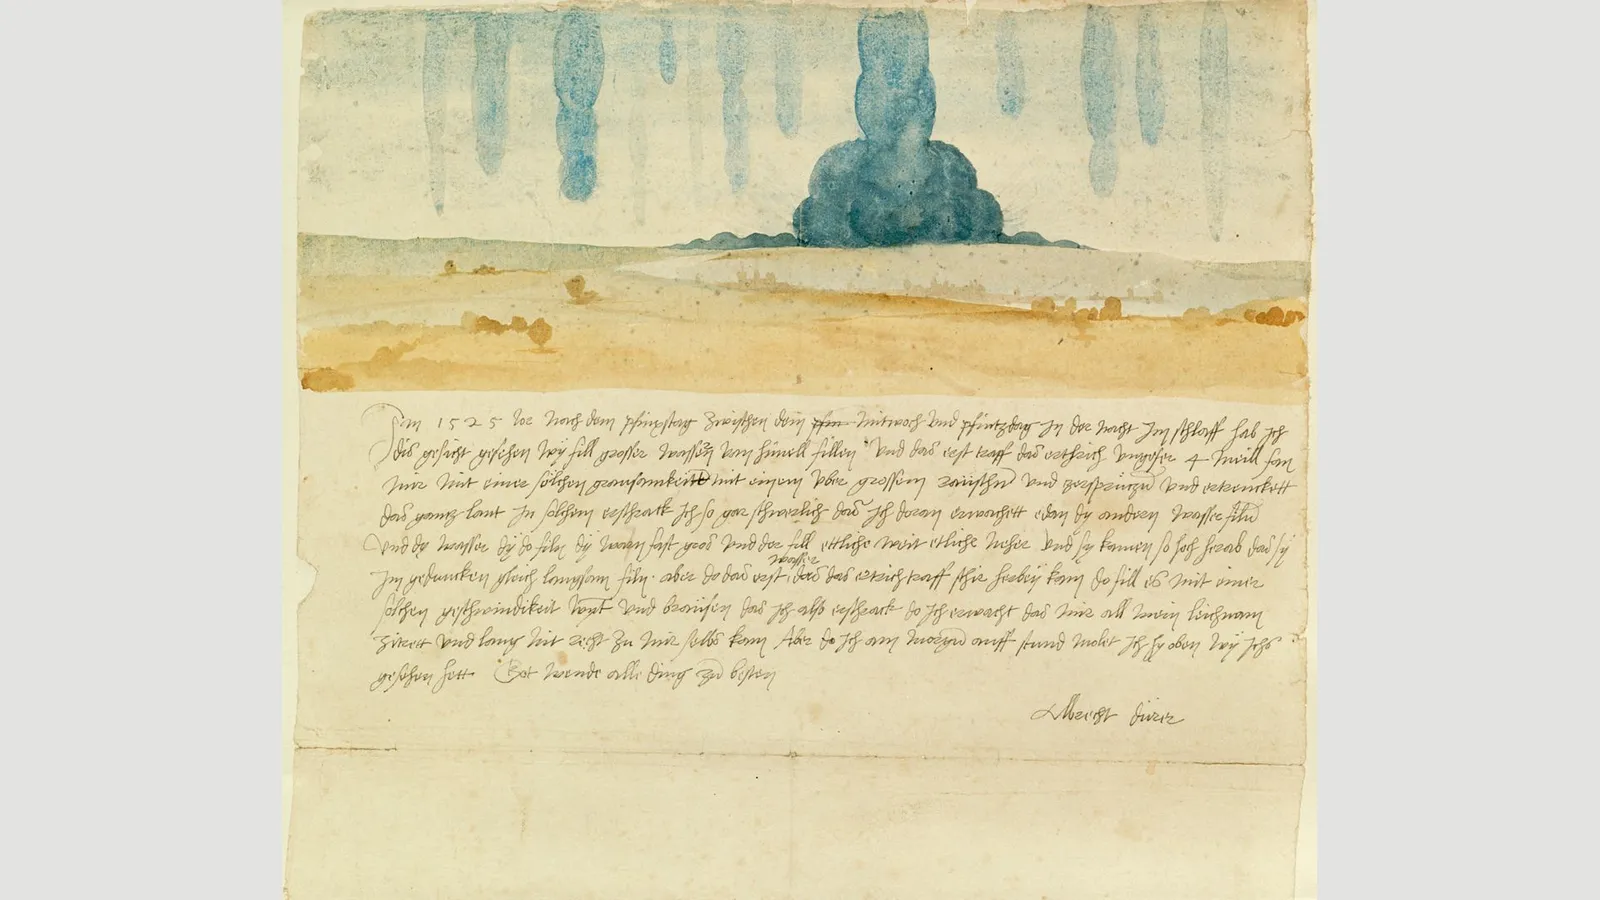 Im 1525 Jor nach dem pfinxstag zwischen dem pfin mitwoch und pfintzdag in der nacht im schlaff hab ich
dis gesicht gesehen wy fill grosser wassern vom himell fillen Und das erst traff das erthrich ungefer 4 meill fan
mir mit einer solchen grausamkeitt mit einem uber grossem raüschn und zersprützn und ertrenckett
das gantz lant In solchem erschrack ich so gar schwerlich das ich doran erwachett edan dy andern wasser filn
Und dy wasser dy do filn dy warn fast gros und der fill ettliche weit etliche neher und sy kamen so hoch herab das sy
im geduncken gleich langsam filn. aber do das erst wasser das das ertrich traff schir herbey kam do fill es mit einer
solchen geschwindikeit wynt und braüsen das ich also erschrack do ich erwacht das mir all mein leichnam
zitrett und lang nit recht zu mir selbs kam Aber do ich am morgn auff stund molet ich hy oben wy ichs
gesehen hett Got wende alle ding zu besten
Albrecht dürer